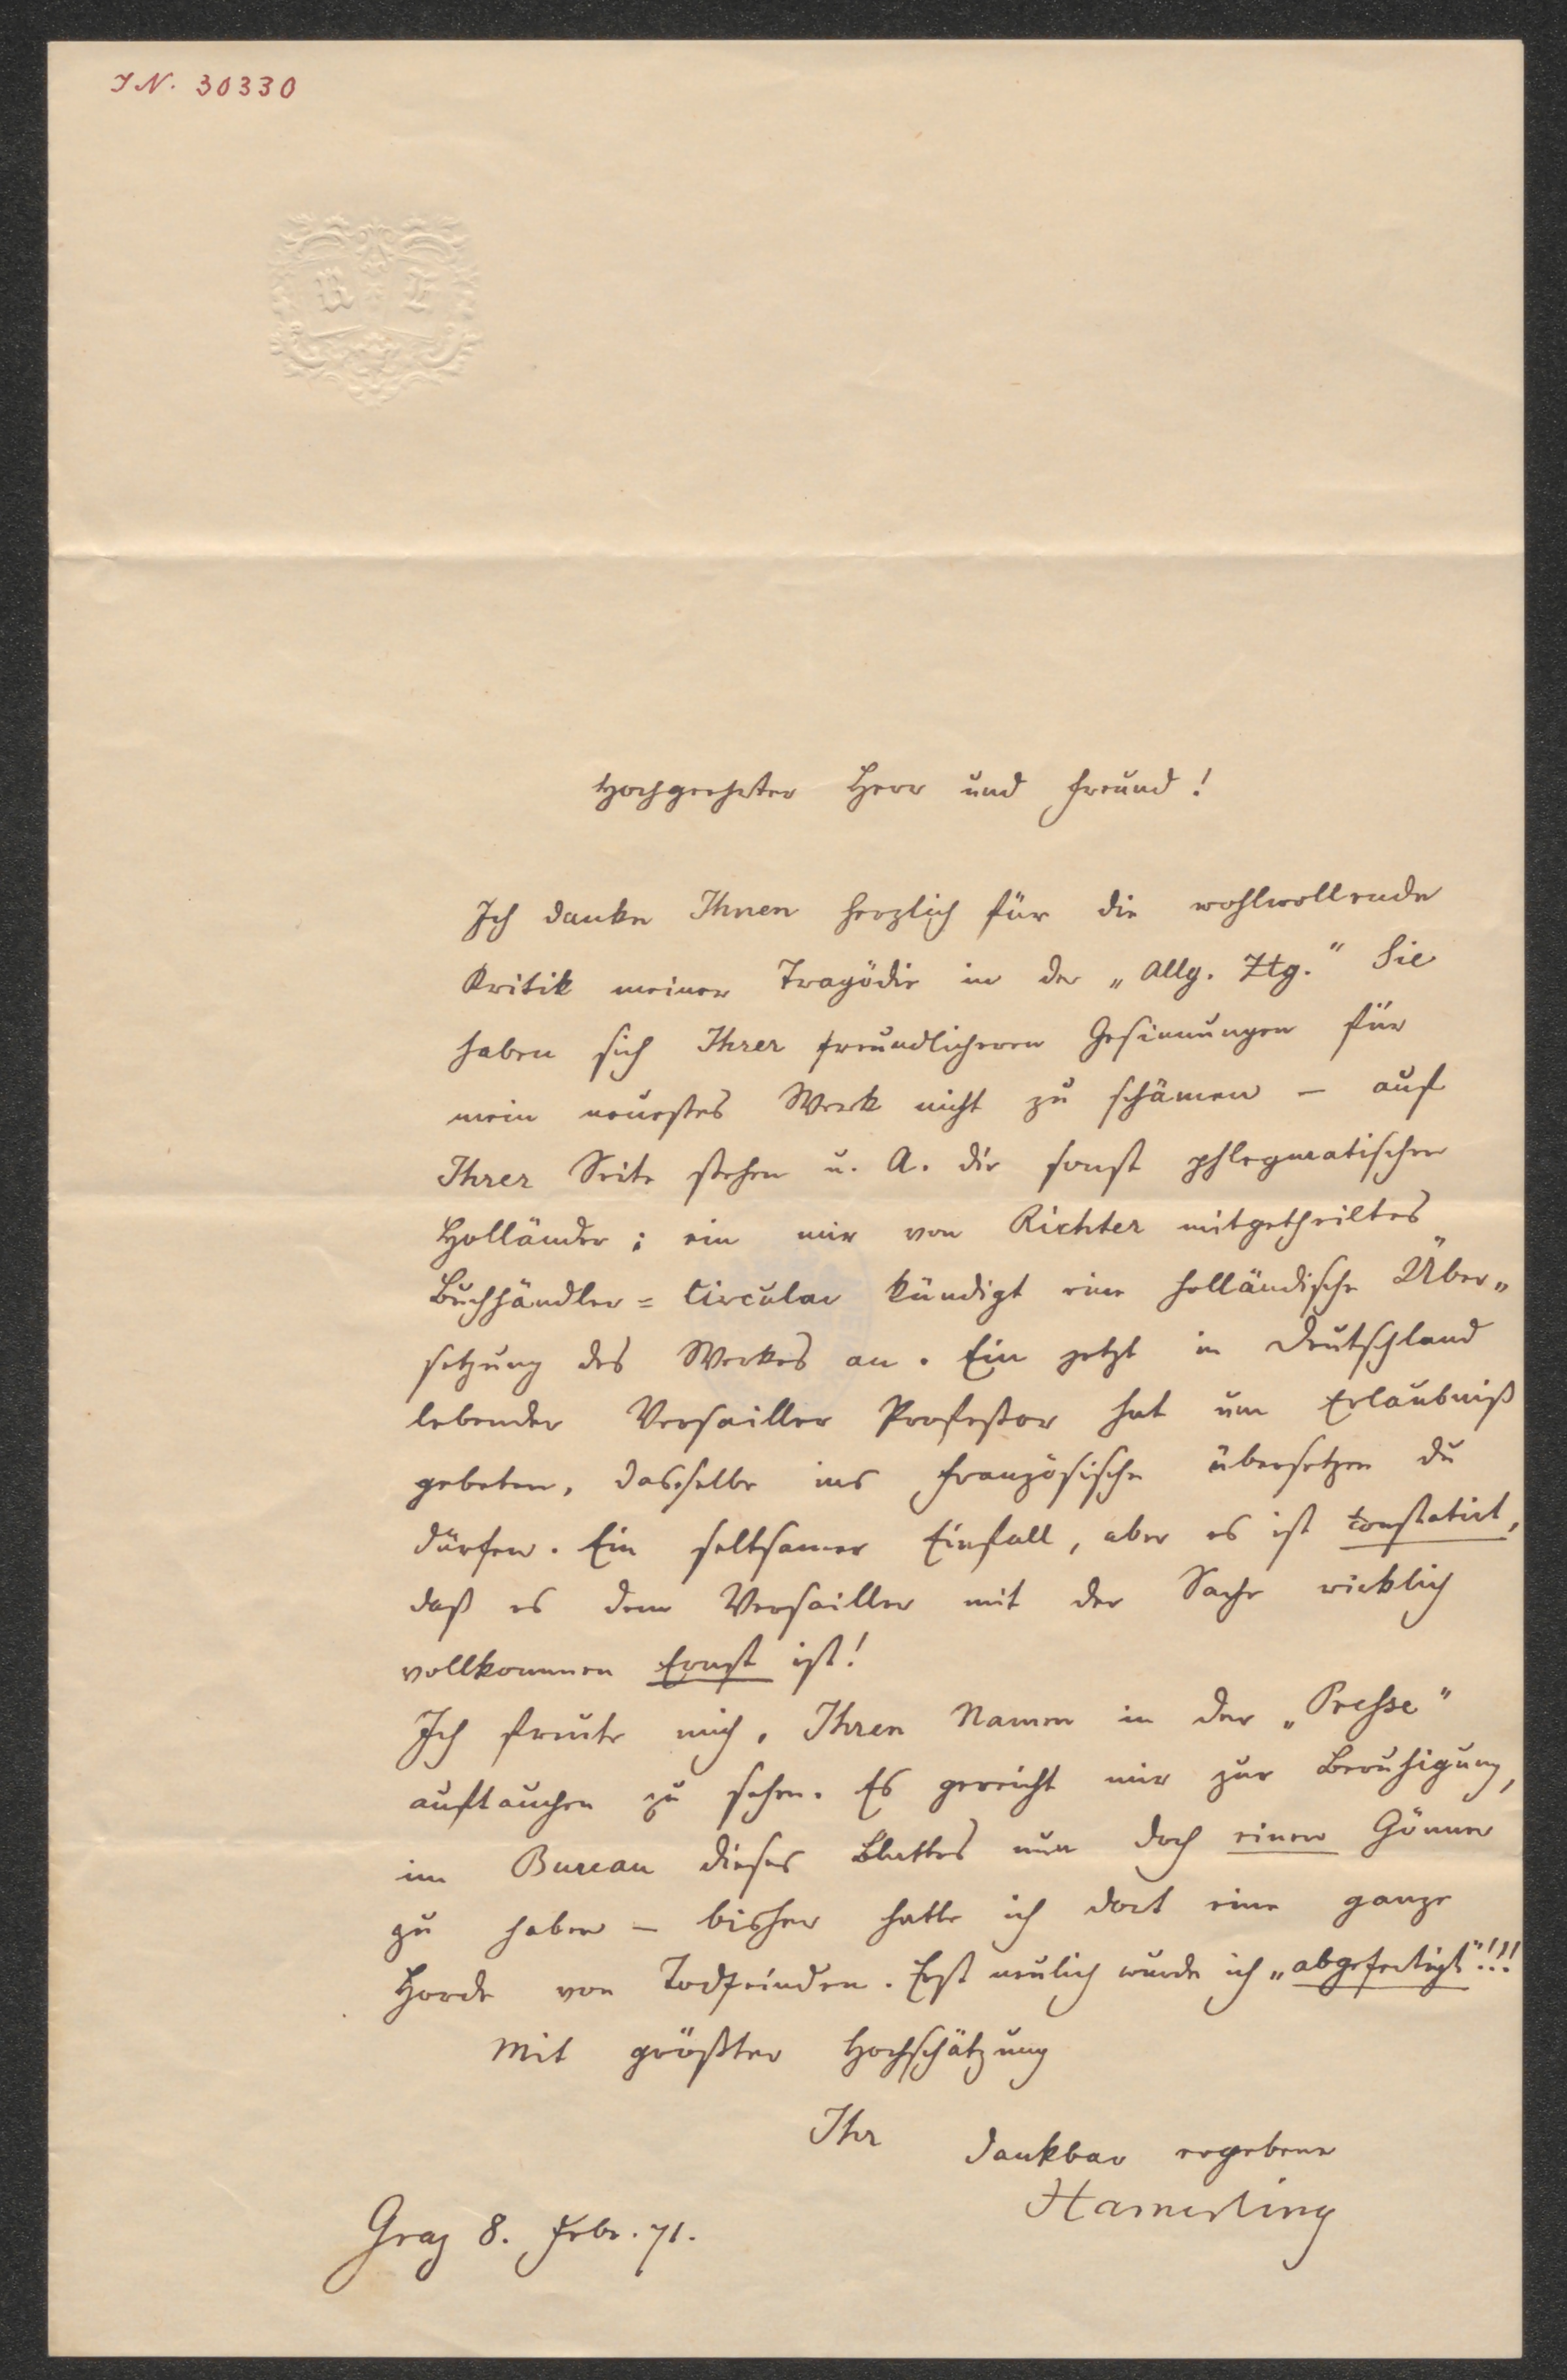 IN. 30330
Hochgeehrter Herr und Freund!
Ich danke Ihnen herzlich für die wohlwollende
Kritik meiner Tragödie in der „Allg. Ztg.“ Sie
haben sich Ihrer freundlicheren Gesinnungen für
mein neuestes Werk nicht zu schämen – auf
Ihrer Seite stehen u. A. die sonst phlegmatischen
Holländer; ein mir von Richter mitgetheiltes
Buchhändler=Circular kündigt eine holländische Über„
setzung des Werkes an. Ein jetzt in Deutschland
lebender Versailler Professor hat um Erlaubniß
gebeten, dasselbe ins Französische übersetzen du
dürfen. Ein seltsamer Einfall, aber es ist constatirt,
daß es dem Versailler mit der Sache wirklich
vollkommen Ernst ist!
Ich freute mich, Ihren Namen in der „Presse“
auftauchen zu sehen. Es gereicht mir zur Beruhigung,
im Bureau dieses Blattes nun doch einen Gönner
zu haben – bisher hatte ich dort eine ganze
Horde von Todfeinden. Erst neulich wurde ich „abgefertigt“!!!
Mit größter Hochschätzung
Ihr dankbar ergebener
Hamerling
Graz 8. Febr. 71.